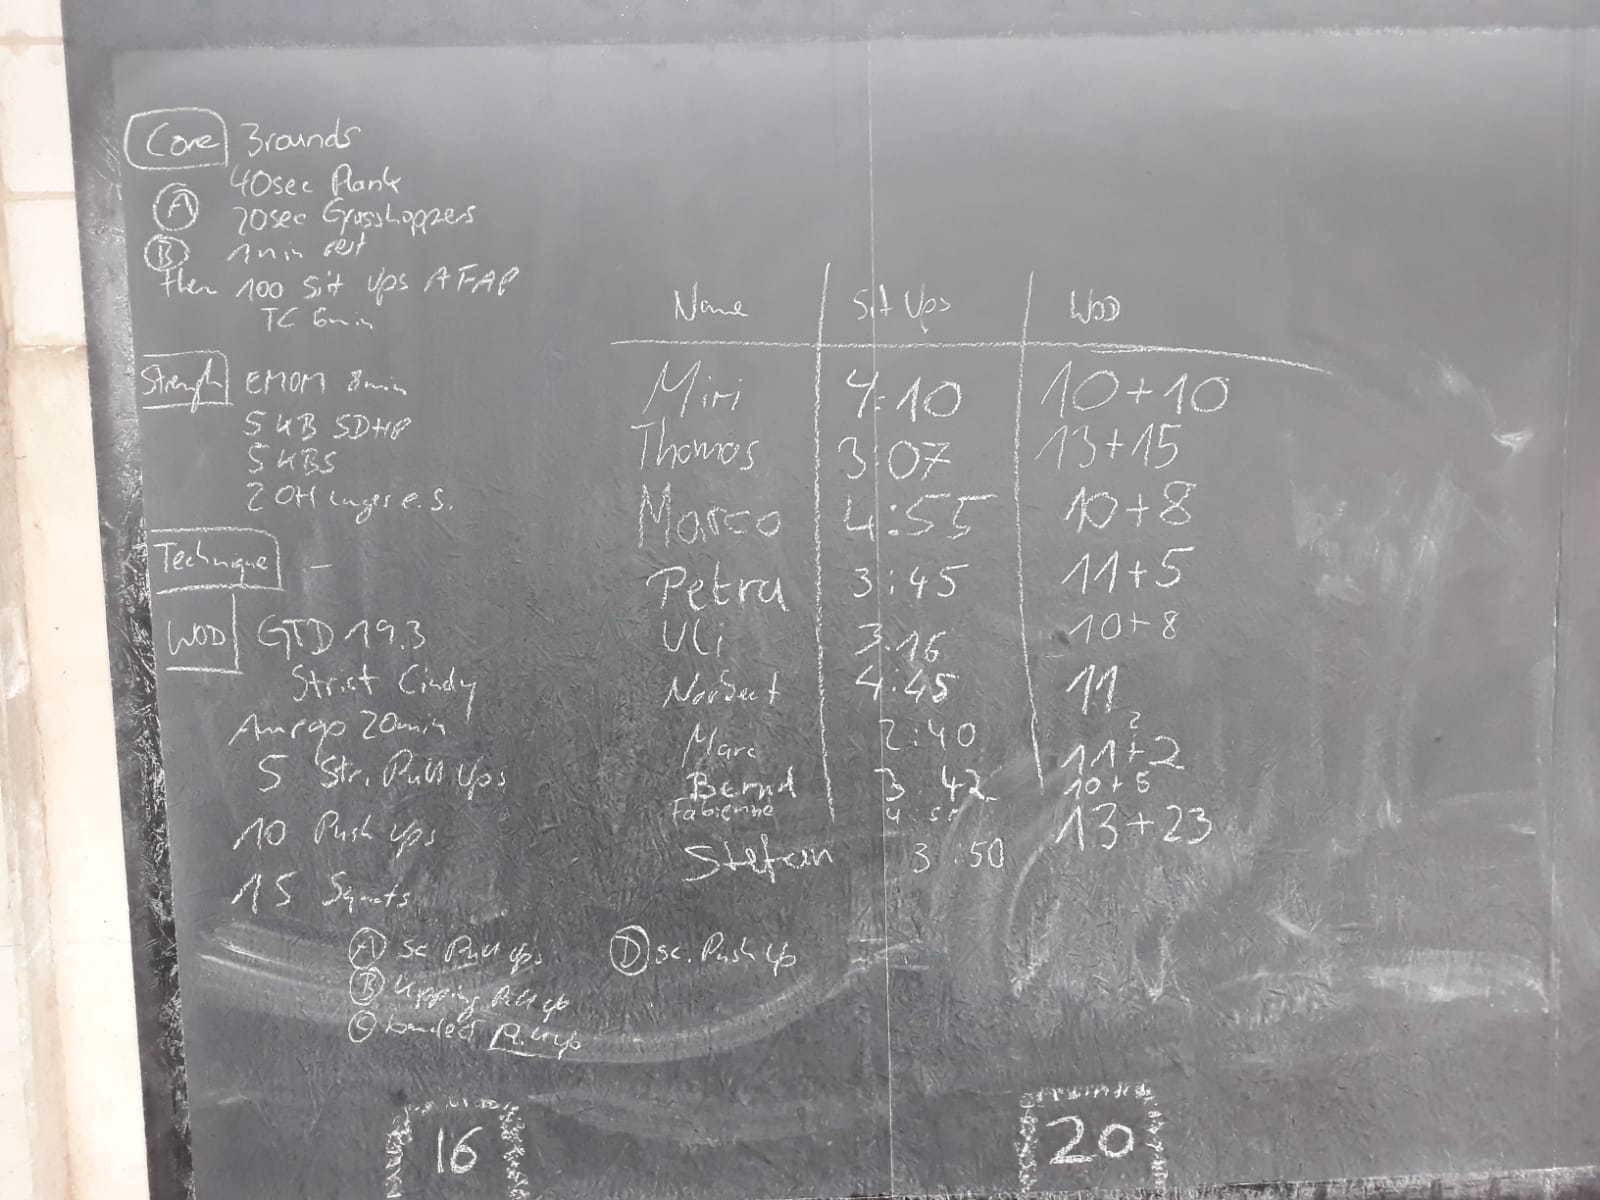 Core 3 rounds
40sec Plank
A 20sec Grasshoppers
B 1min rest
then 100 Sit Ups AFAP
TC 6min
Strength EMOM 8min
5 KB SDHP
5 KBS
2 OH Lunges e.s.
Technique –
WOD GTD 19.3
Strict Cindy
Amrap 20min
5 Str. Pull Ups
10 Push Ups
15 Squats
A sc Pull Ups
B Kipping Pull up
C banded Pull up
D sc. Push Up
Name Sit Ups WOD
Miri 4:10 10+10
Thomas 3:07 13+15
Marco 4:55 10+8
Petra 3:45 11+5
Uli 3:16 10+8
Norbert 4:45 11
Marc 2:40 11+2
Bernd 3 42 10+5
Fabienne 13+23
Stefan 3:50
16
20